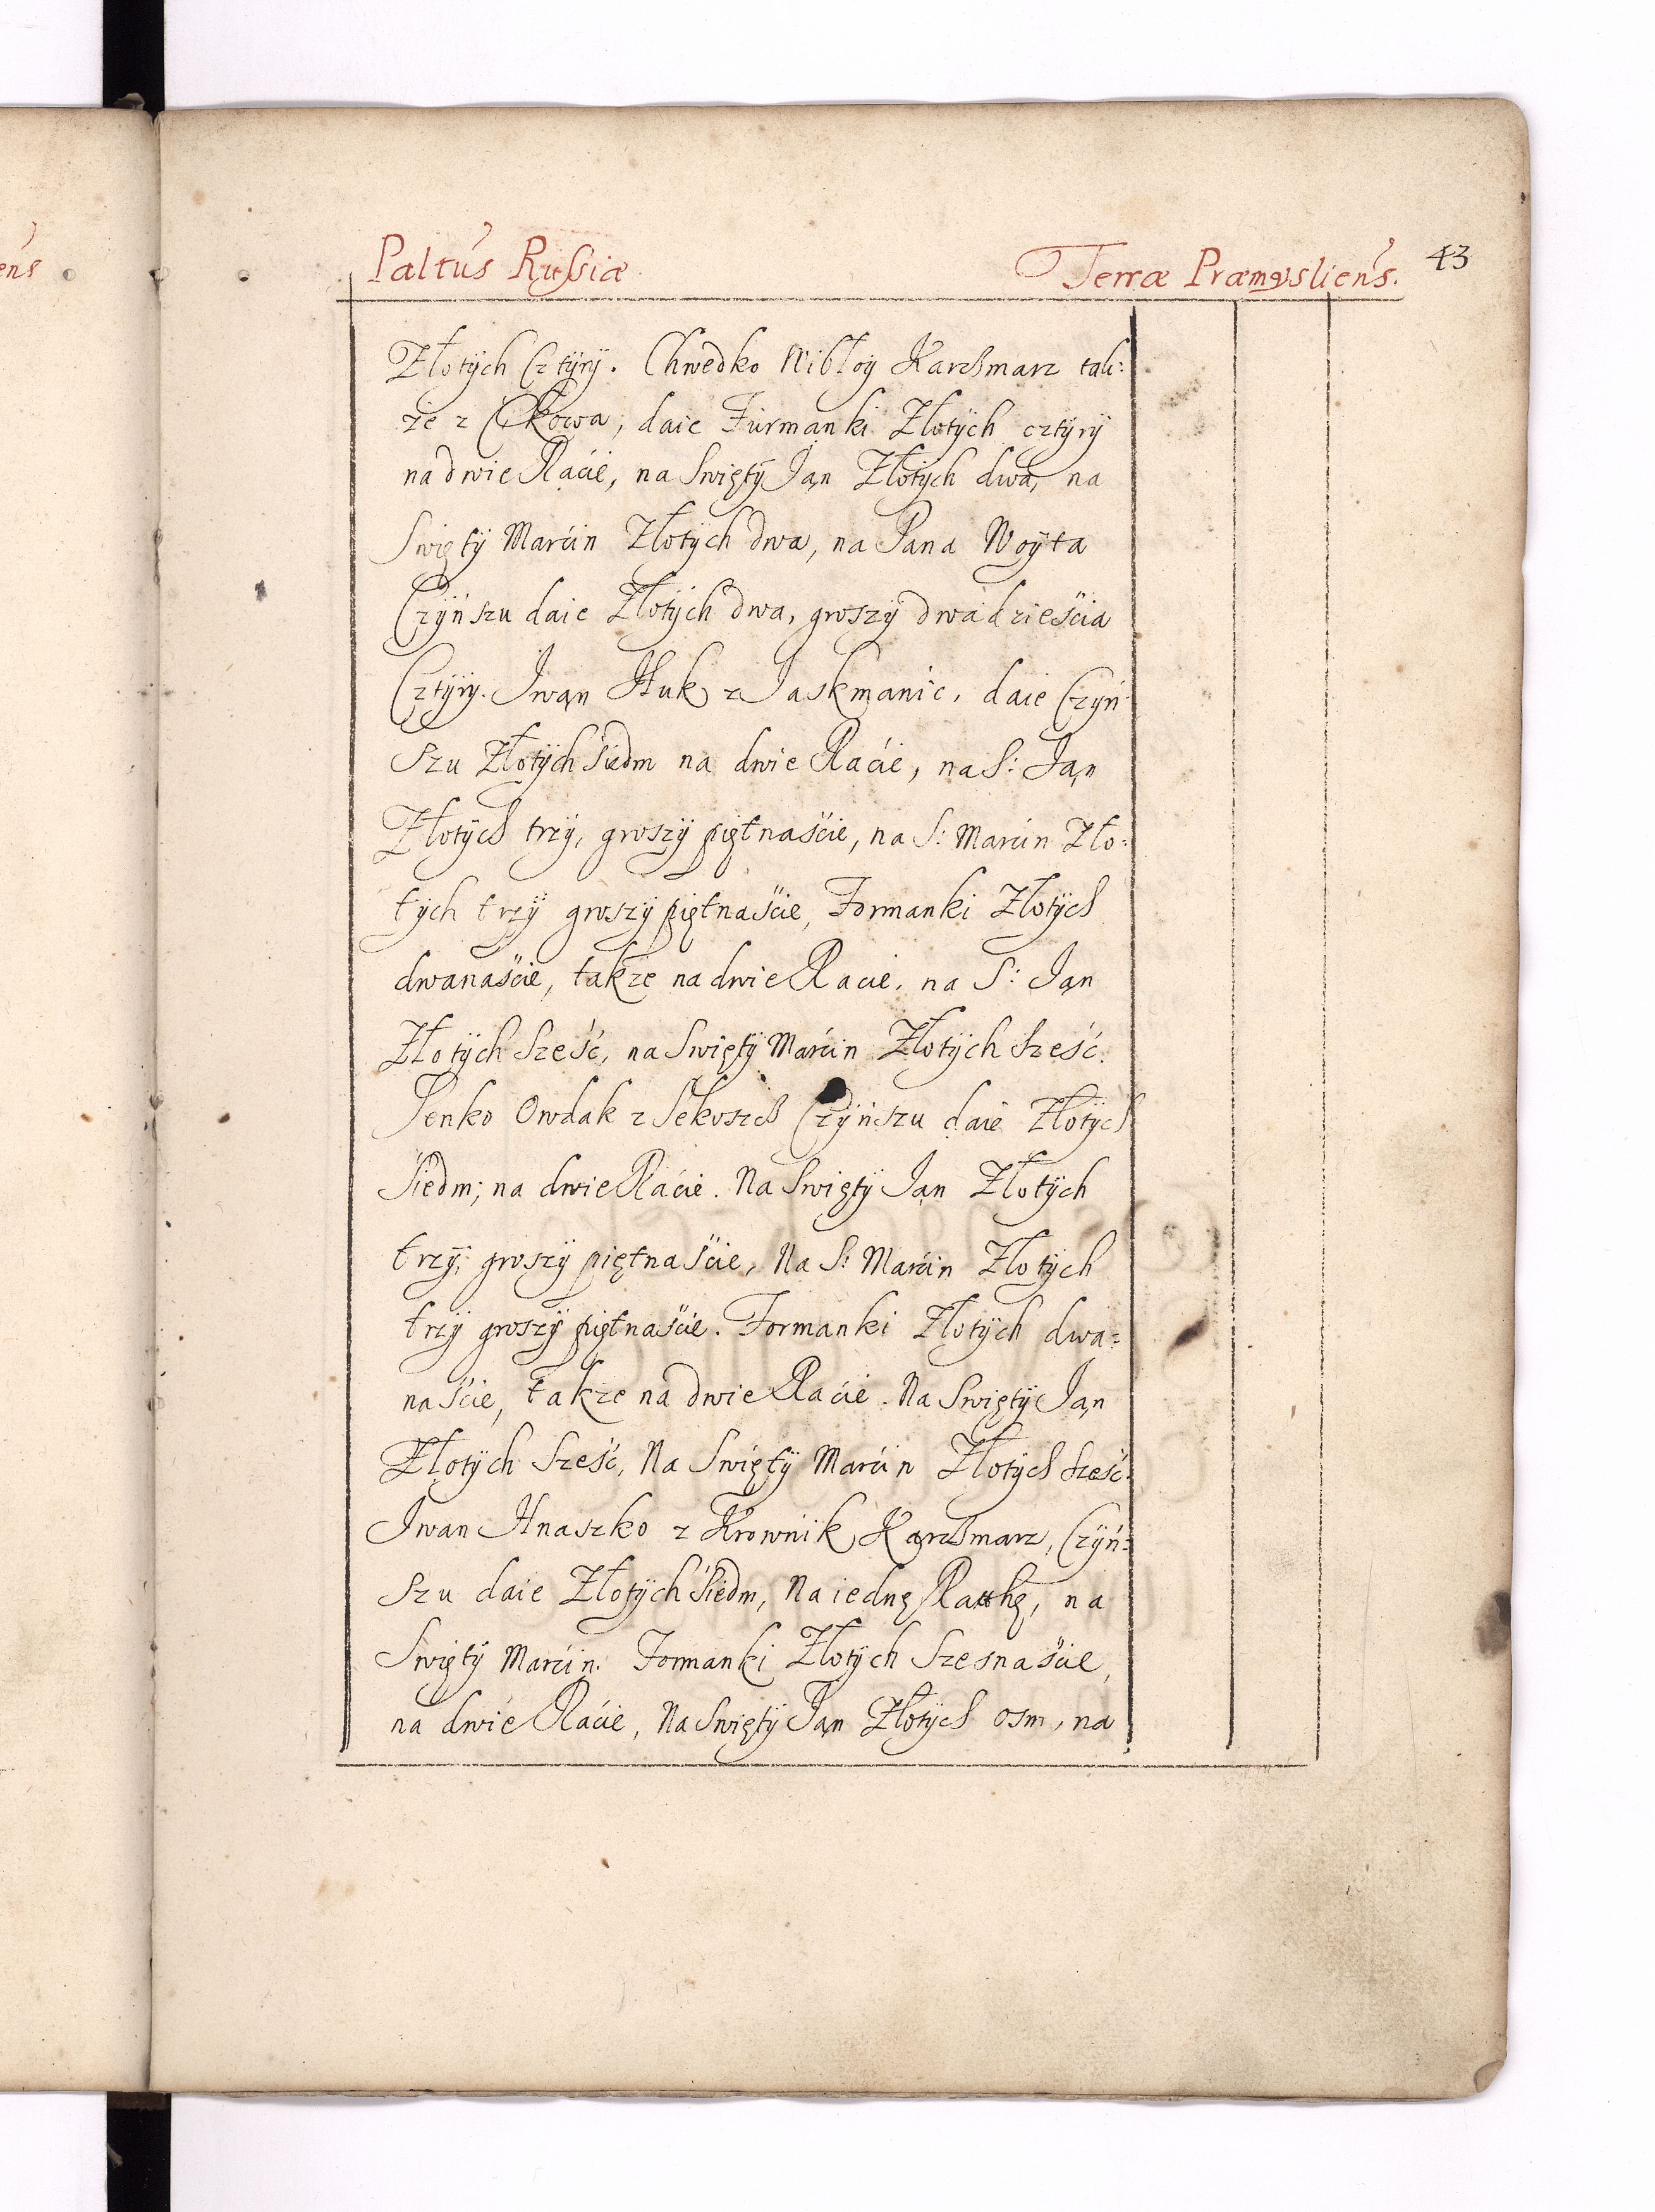 Paltus Russiæ Terræ Præmysliens. 43
Złotych Cztÿrÿ. Chwedko Nibłoÿ Karczmarz tak:
że z Cykowa, daie Furmanki Złotych cztÿrÿ
na dwie Raćie, na Swiętÿ Jąn Złotÿch dwa, na
Swiętÿ Marćin Złotÿch dwa, na Pana Woÿta
Czÿńszu daie Złotÿch dwa, groszÿ dwadzieśćia
Cztÿrÿ. Jwąn Huk z Jaskmanic, daie Czÿń
szu Złotÿch śiedm na dwie Raćie, na S: Jąn
Złotÿch trzÿ, groszÿ piętnaśćie, na S: Marćin Zło:
tÿch trzÿ groszÿ piętnaśćie, Formanki Złotÿch
dwanaśćie, także na dwie Racie, na S: Jąn
Złotÿch sześć, na Swiętÿ Marćin Złotÿch sześć.
Senko Owdak z Sekoszch Czÿńszu daie Złotÿch
śiedm; na dwie Raćie. Na Swiętÿ Jąn Złotÿch
trzÿ, groszÿ piętnaśćie, Na S: Marćin Złotÿch
trzÿ groszÿ piętnaśćie. Formanki Złotÿch dwa:
naśćie, także na dwie Raćie. Na Swiętÿ Jąn
Złotÿch sześć, Na Swiętÿ Marćin Złotÿch sześć.
Jwan Hnaszko z Krownik Karczmarz, Czÿń:
szu daie Złotÿch śiedm, Na iednę Ratthę, na
Swiętÿ Marćin. Formanki Złotÿch szesnaśćie,
na dwie Raćie, Na Swiętÿ Jąn Złotÿch osm, na